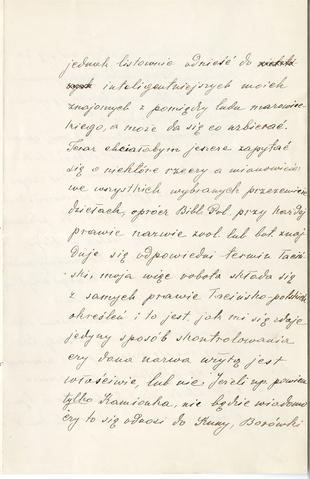 jednak listownie odnieść do
inteligentniejszych moich
znajomych z pomiędzy ludu mazowiec
kiego, a może da się co uzbierać.
Teraz chciałabym jeszcze zapytać
się o niektóre rzeczy a mianowicie:
we wszystkich wybranych przezemnie
dziełach, oprócz Bibl. Pol. przy każdej
prawie nazwie zool. lub bot. znaj
duje się odpowiedni termin łaciń
ski, moja więc robota składa się
z samych prawie łacińsko-polskich
określeń i to jest, jak mi się zdaje
jedyny sposób skontrolowania
czy dana nazwa użytą jest
właściwie, lub nie. Jeżeli np. powiem
tylko Kamionka, nie będzie wiadomo
czy to się odnosi do Kuny, Borówki